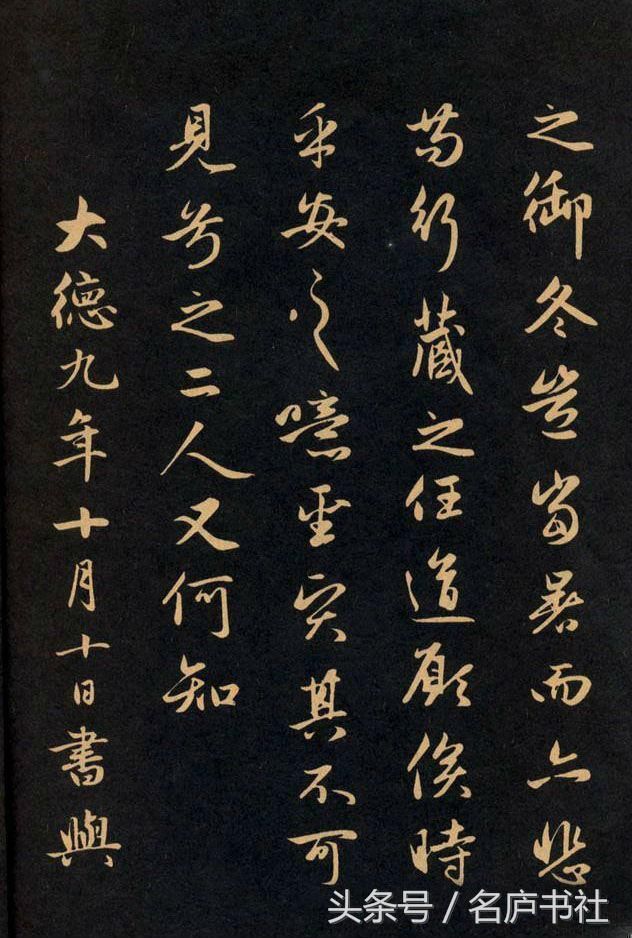 之御冬豈當暑而亦悲
苟行藏之任道願俟時
乎安之噫聖賢其不可
見兮之二人又何知
大德九年十月十日書嶼
头条号 / 名庐书社